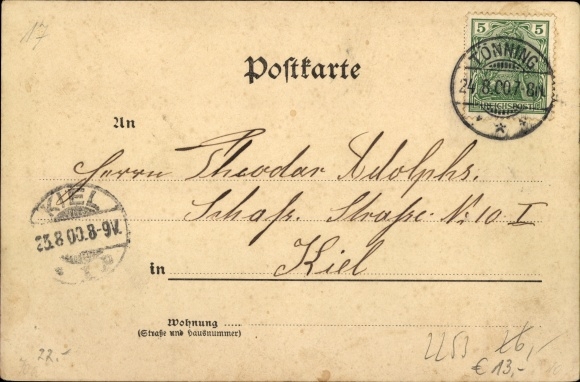 17
Postkarte
5 5
REICHSPOST
TÖNNING
24.8.00.7-8N.
An
Herrn Theodor Adolphs.
Schaß. Straße No 10 I
in Kiel
KIEL
25.8.00.8-9V.
Wohnung
(Straße und Hausnummer)
22.-
€ 13,-